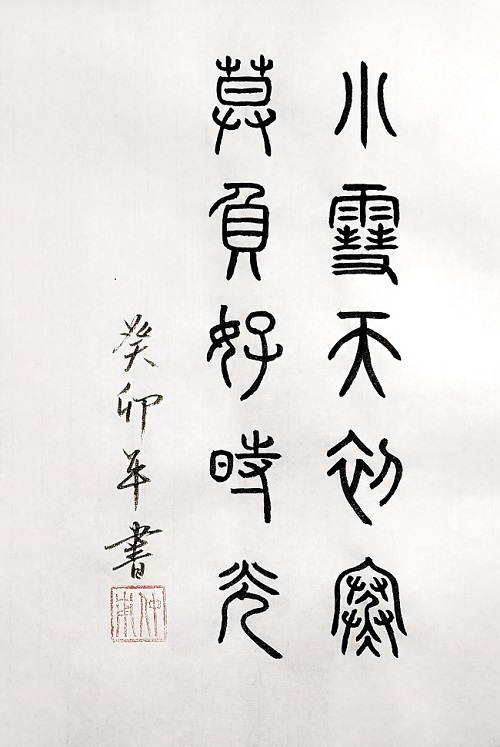 小雪天初寒
莫負好時光
癸卯年書